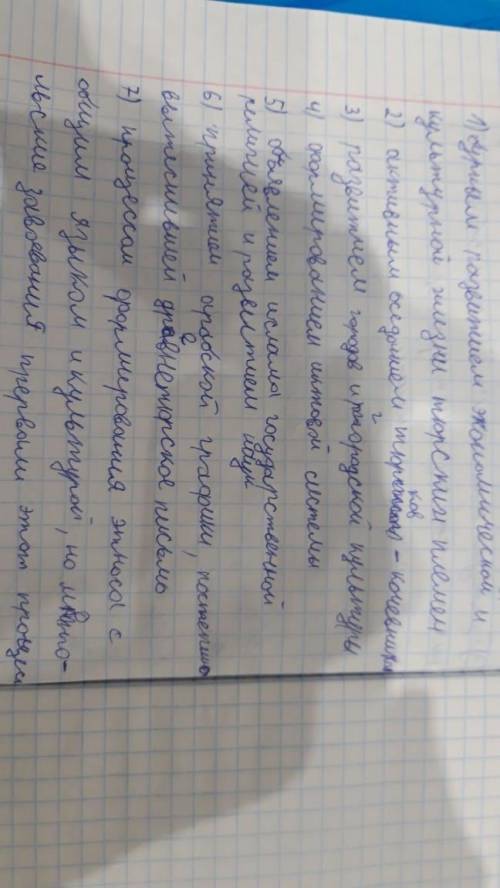 1) бурным развитием экономической и
культурной жизни тюрских племен
2) активным оседанием тюрков - кочевников
3) развитием городов и городской культуры
4) формированием иктовой системы
5) объявлением ислама государственной
религией и развитием наук
6) принятием арабской графики, постепенно
вытеснившей древнетюрское письмо
7) процессом формирования этноса с
общим языком и культурой, но монго-
льские завоевания прервали этот процесс